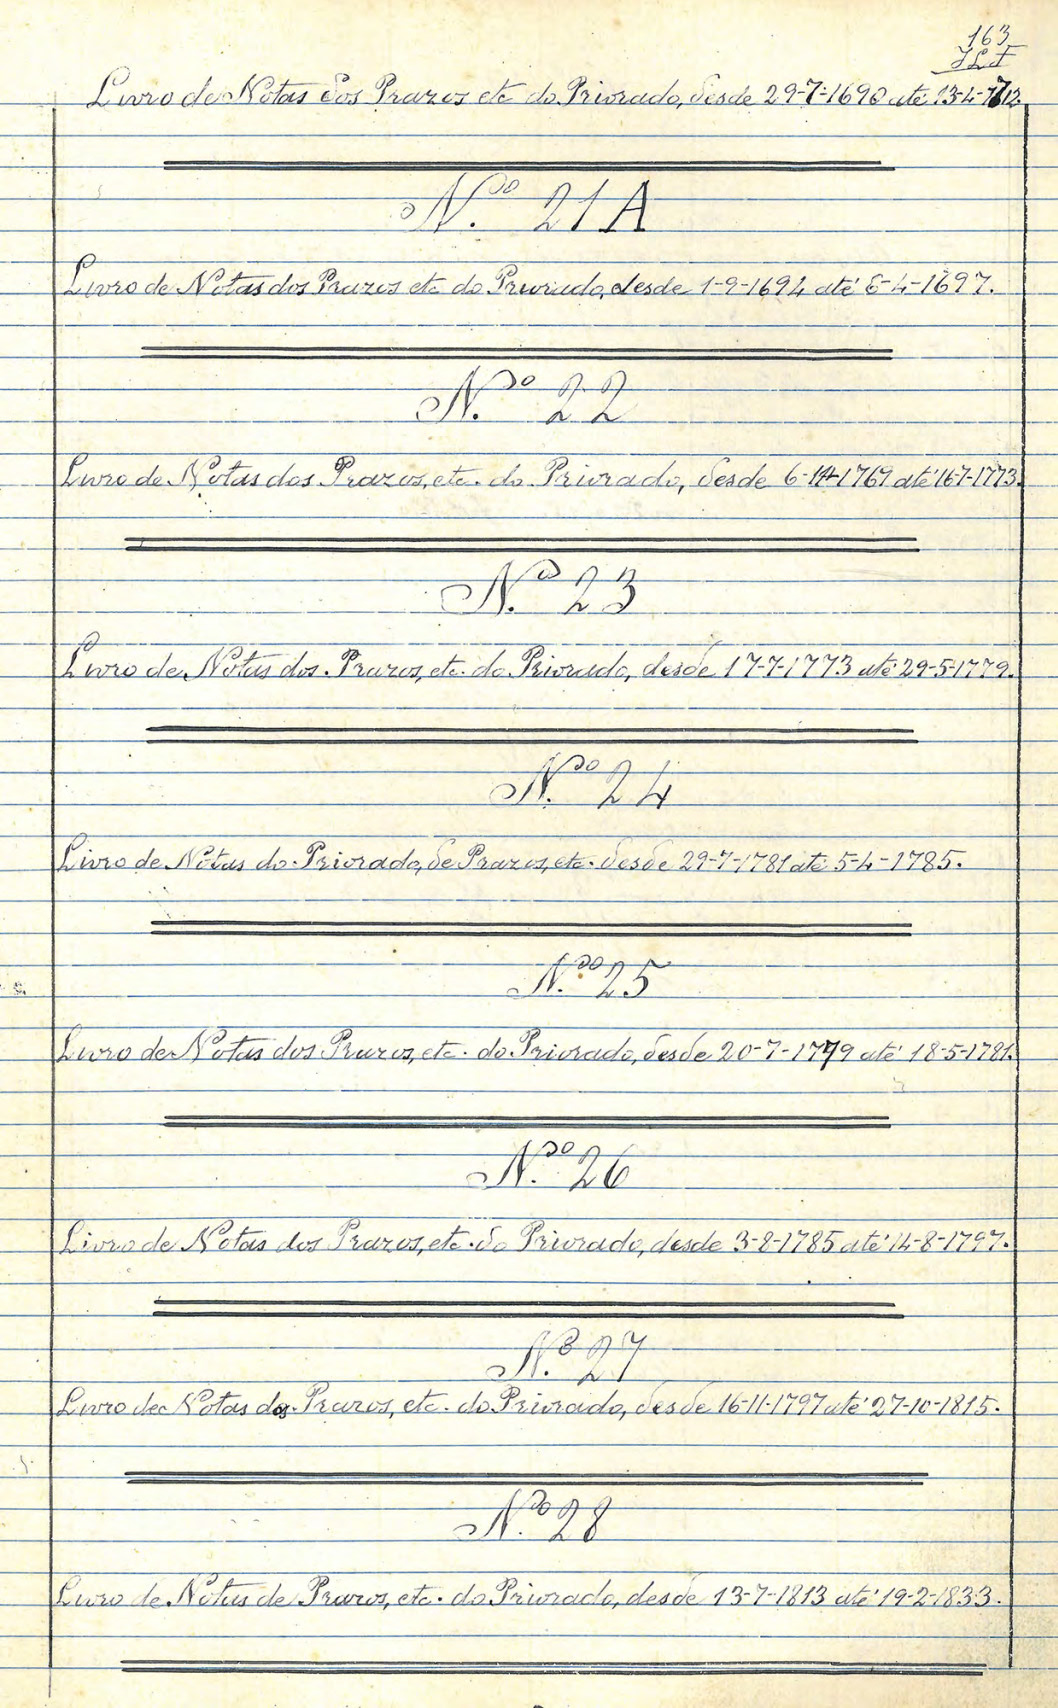 163
Livro de Notas dos Prazos etc do Priorado, desde 29-7-1690 até 13-4-1712.
N.º 21A
Livro de Notas dos Prazos etc do Priorado, desde 1-9-1694 até 8-4-1697.
N.º 22
Livro de Notas dos Prazos, etc. do Priorado, desde 6-11-1769 até 16-7-1773.
N.º 23
Livro de Notas dos Prazos, etc. do Priorado, desde 17-7-1773 até 29-5-1779.
N.º 24
Livro de Notas do Priorado, de Prazos, etc. desde 29-7-1781 até 5-4-1785.
N.º 25
Livro de Notas dos Prazos, etc. do Priorado, desde 20-7-1779 até 18-5-1781.
N.º 26
Livro de Notas dos Prazos, etc. do Priorado, desde 3-8-1785 até 14-8-1797.
N.º 27
Livro de Notas dos Prazos, etc. do Priorado, desde 16-11-1797 até 27-10-1815.
N.º 28
Livro de Notas de Prazos, etc. do Priorado, desde 13-7-1813 até 19-2-1833.